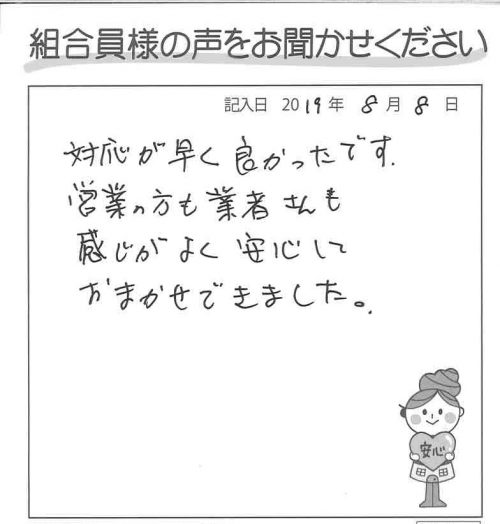 組合員様の声をお聞かせください
記入日 2019年 8月 8日
対応が早く良かったです.
営業の方も業者さんも
感じがよく安心して
おまかせできました。
安心